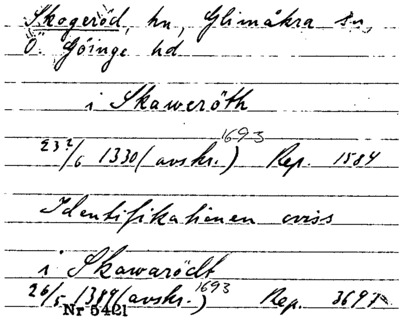 Skogeröd, hn, Glimåkra sn,
Ö. Göinge hd
i Skaweröth
23?/6 1330 (avskr. 1693) Rep. 1584
Identifikationen oviss
i Skawarödt
26/5 1399 (avskr. 1693) Rep. 3697
Nr 5421